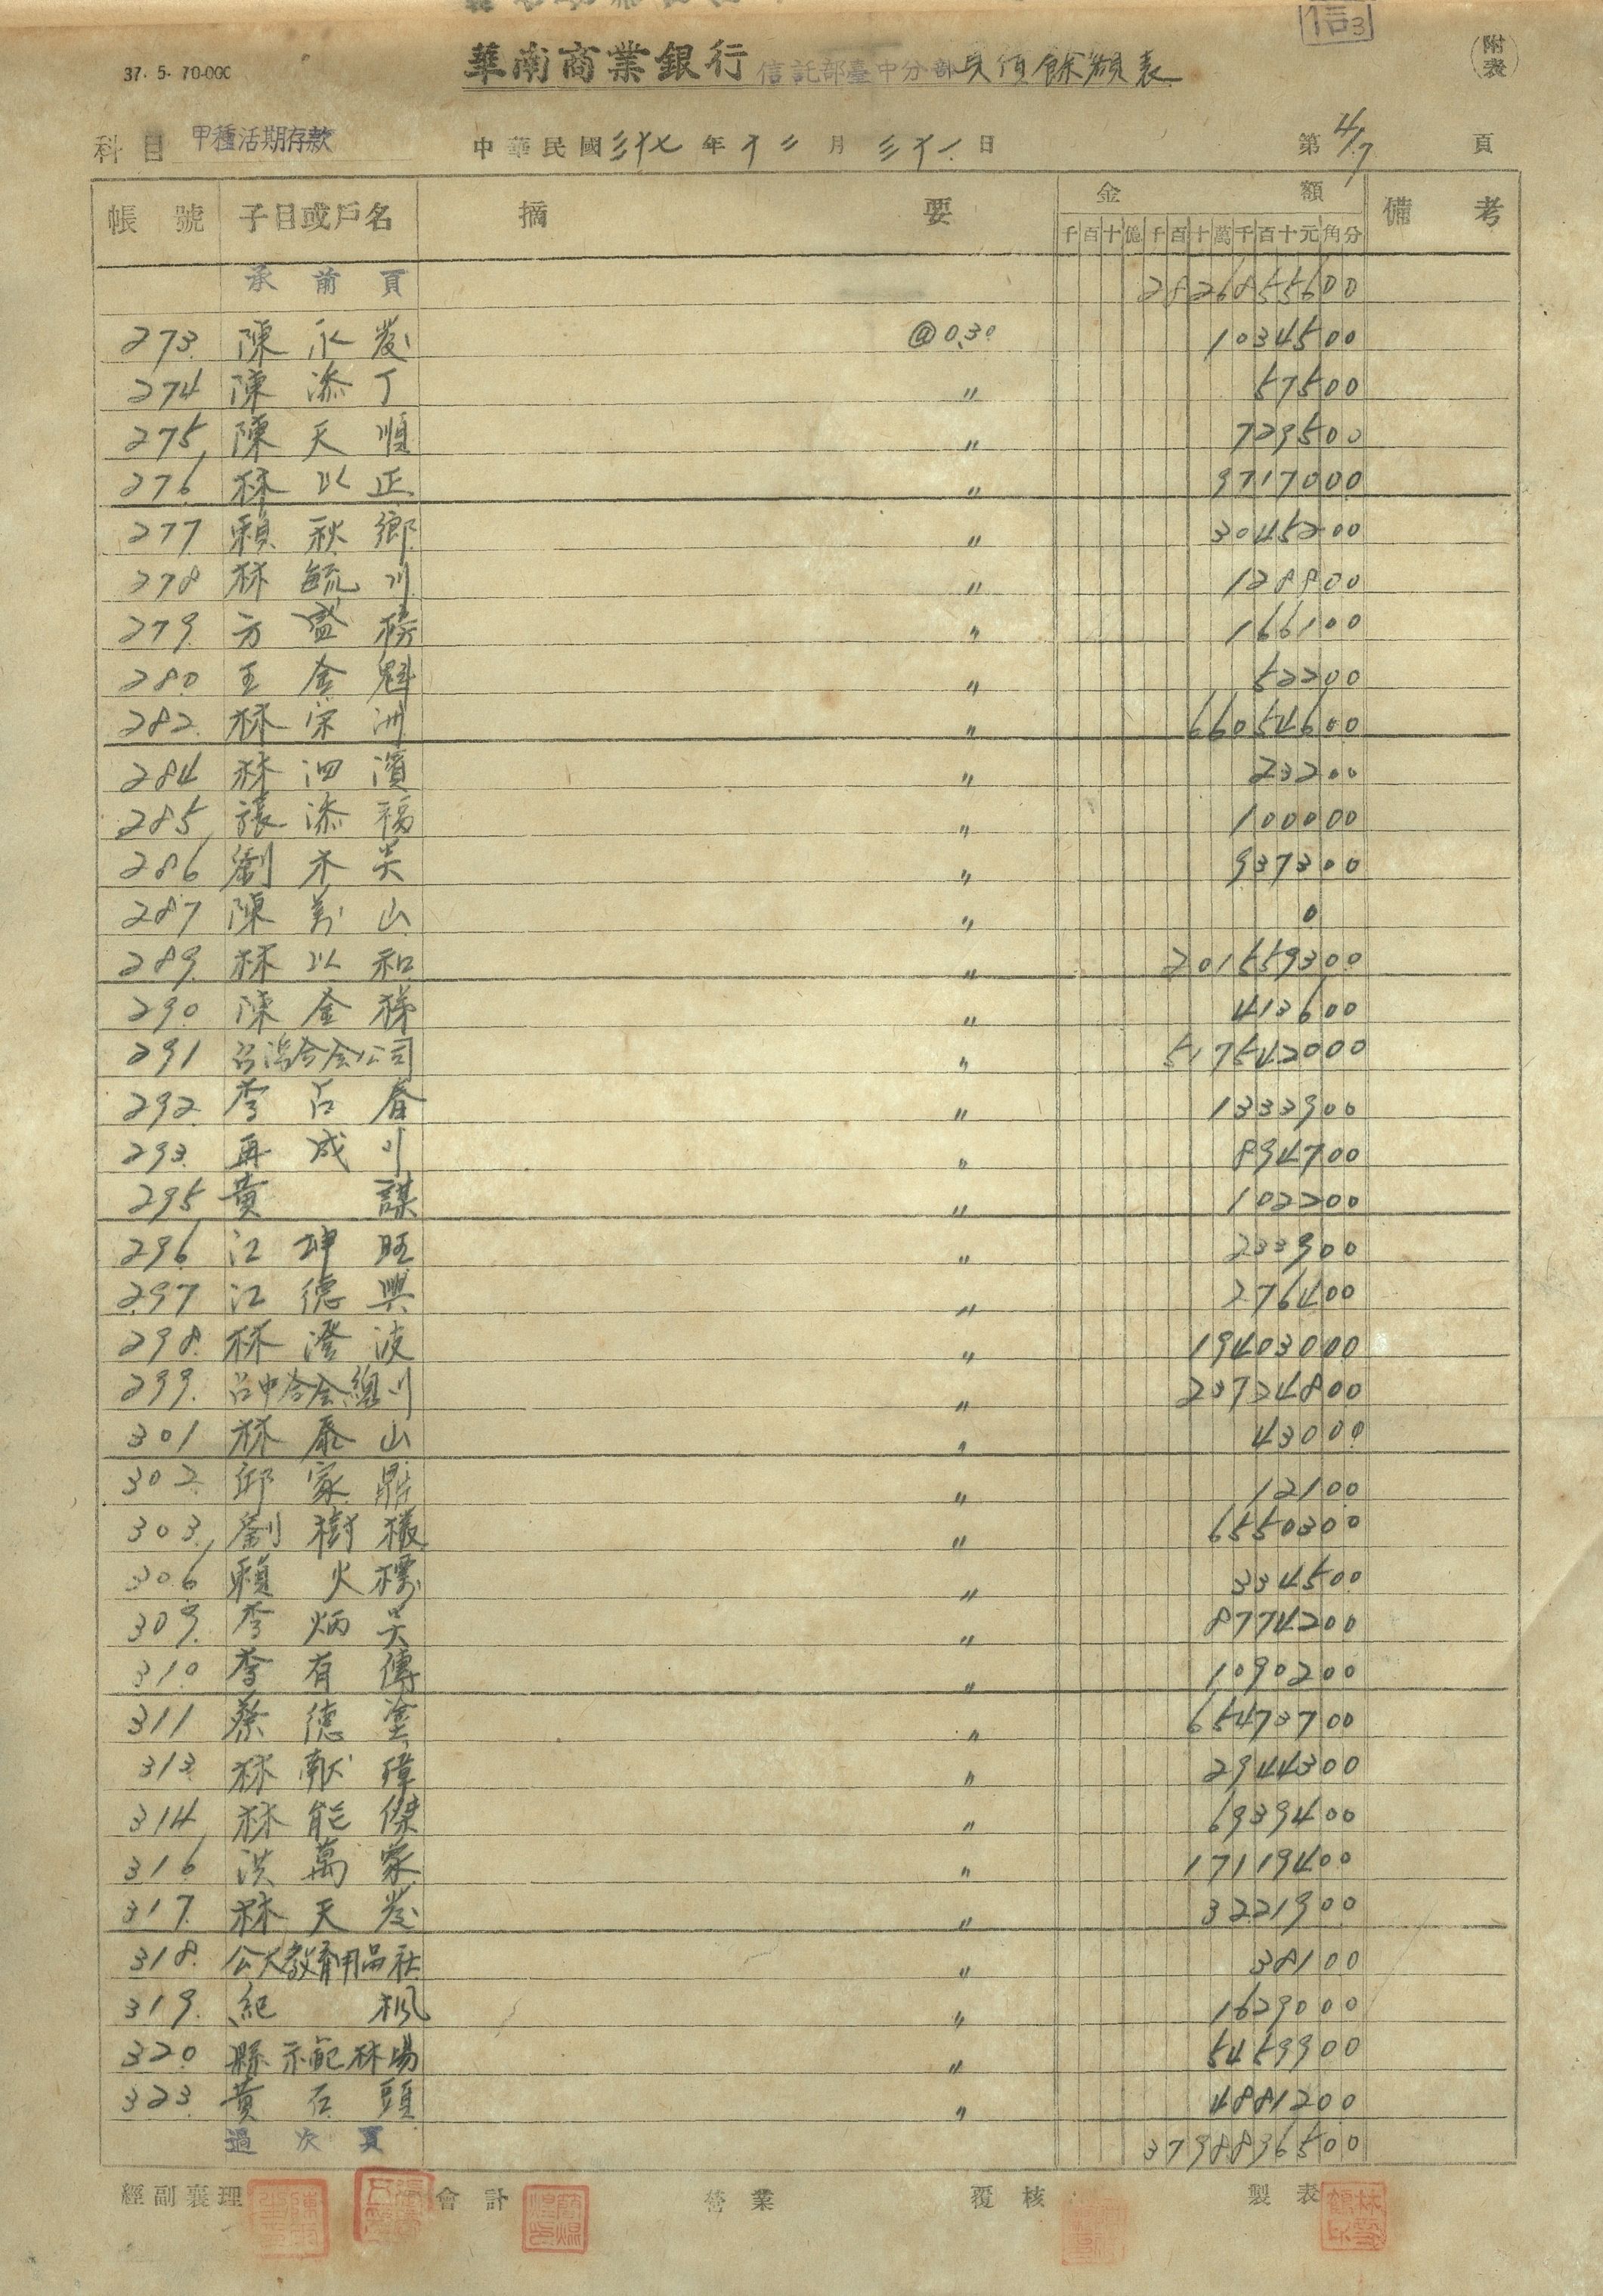 信3
37. 5. 70.000
華南商業銀行 信託部臺中分部 負債餘額表
附表
科目 甲種活期存款 中華民國 三十七 年 十二 月 三十一 日 第 4/7 頁
帳號 子目或戶名 摘要 金額 備考
千百十億千百十萬千百十元角分
承前頁 2826855600
273. 陳永發 @0.30 1034500
274 陳添丁 〃 57500
275, 陳天順 〃 729500
276. 林以正 〃 9717000
277. 賴秋鄉 〃 3045200
278 林毓川 〃 128800
279. 方盛榜 〃 166100
280 王金魁 〃 52200
282. 林宗洲 〃 66054600
284 林泗濱 〃 23200
285, 張添福 〃 100000
286 劉木尖 〃 937300
287 陳萬山 〃 0
289. 林以和 〃 201559300
290 陳金梯 〃 413600
291 台湾合会公司 〃 517542000
292. 李占春 〃 1333900
293. 再成川 〃 894700
295 黃謀 〃 102200
296. 江坤旺 〃 233900
297 江德興 〃 276400
298. 林澄波 〃 19403000
299. 台中合会總川 〃 23724800
301 林泰山 〃 43000
302. 邱家鼎 〃 12100
303, 劉樹 〃 6550300
306. 賴火標 〃 334500
309. 李炳 〃 8774200
310 李有傳 〃 1090200
311 蔡德塗 〃 65473700
313. 林献璋 〃 2944300
314, 林能傑 〃 6939400
316 洪萬家 〃 17119400
317. 林天發 〃 3221900
318. 公大教育用品社 〃 38100
319. 紀楓 〃 1629000
320 縣示範林場 〃 5459900
323. 黃石頭 〃 4881200
過次頁 3798896500
經副襄理 會計 營業 覆核 製表